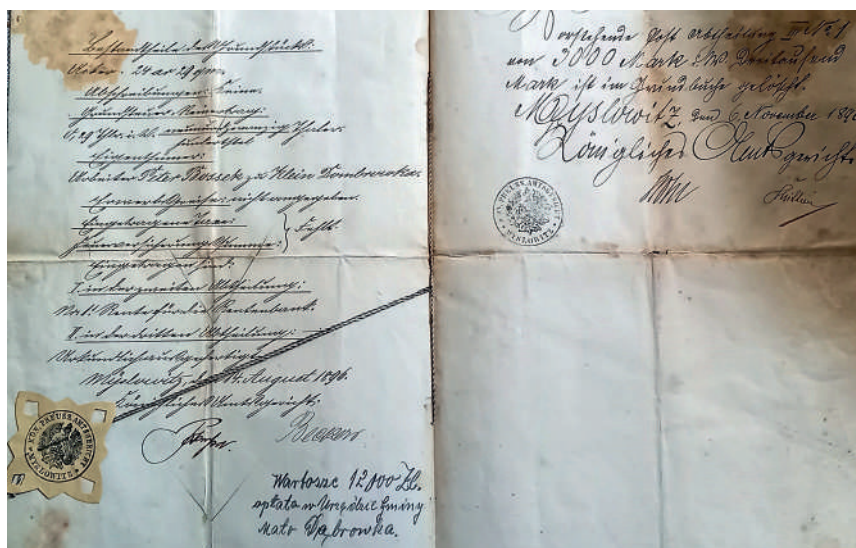 Bestandtheile des Grundstücks:
Acker. 24 ar 29 qm.
Abschreibungen: Keine.
Grundsteuer-Reinertrag:
0,29 Thlr. i. W. neunundzwanzig Thaler
hundertstel
Eigenthümer:
Arbeiter Peter Klein Dombrowka.
Erwerbspreis: nicht angegeben.
Eingetragene Taxe:
Feuerversicherungssumme: } Fehlt.
Eingetragen sind:
I. in der zweiten Abtheilung:
No 1 Rente für die Rentenbank.
II. in der dritten Abtheilung: —
Urkundlich ausgefertigt
Myslowitz, den 14. August 1896.
Königliches Amtsgericht.
Beckers
KÖN. PREUSS. AMTSGERICHT
MYSLOWITZ
Wartosc 12000 Zł.
opłata w Urzędzie Gminy
Mało Dąbrowka.
Vorstehende Post Abtheilung III No 1
von 3000 Mark i. W. Dreitausend
Mark ist im Grundbuche gelöscht.
Myslowitz, den 6. November 189
Königliches Amtsgericht
KN. PREUSS. AMTSGERICHT
MYSLOWITZ